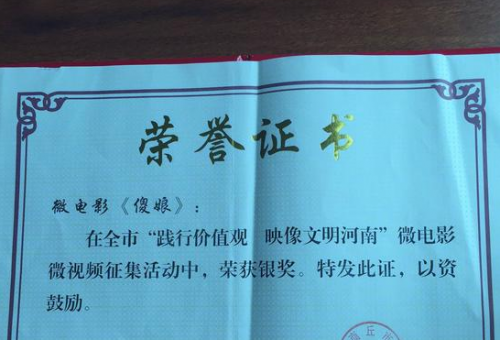 荣誉证书
微电影《傻娘》：
在全市“践行价值观 映像文明河南”微电影
微视频征集活动中，荣获银奖。特发此证，以资
鼓励。